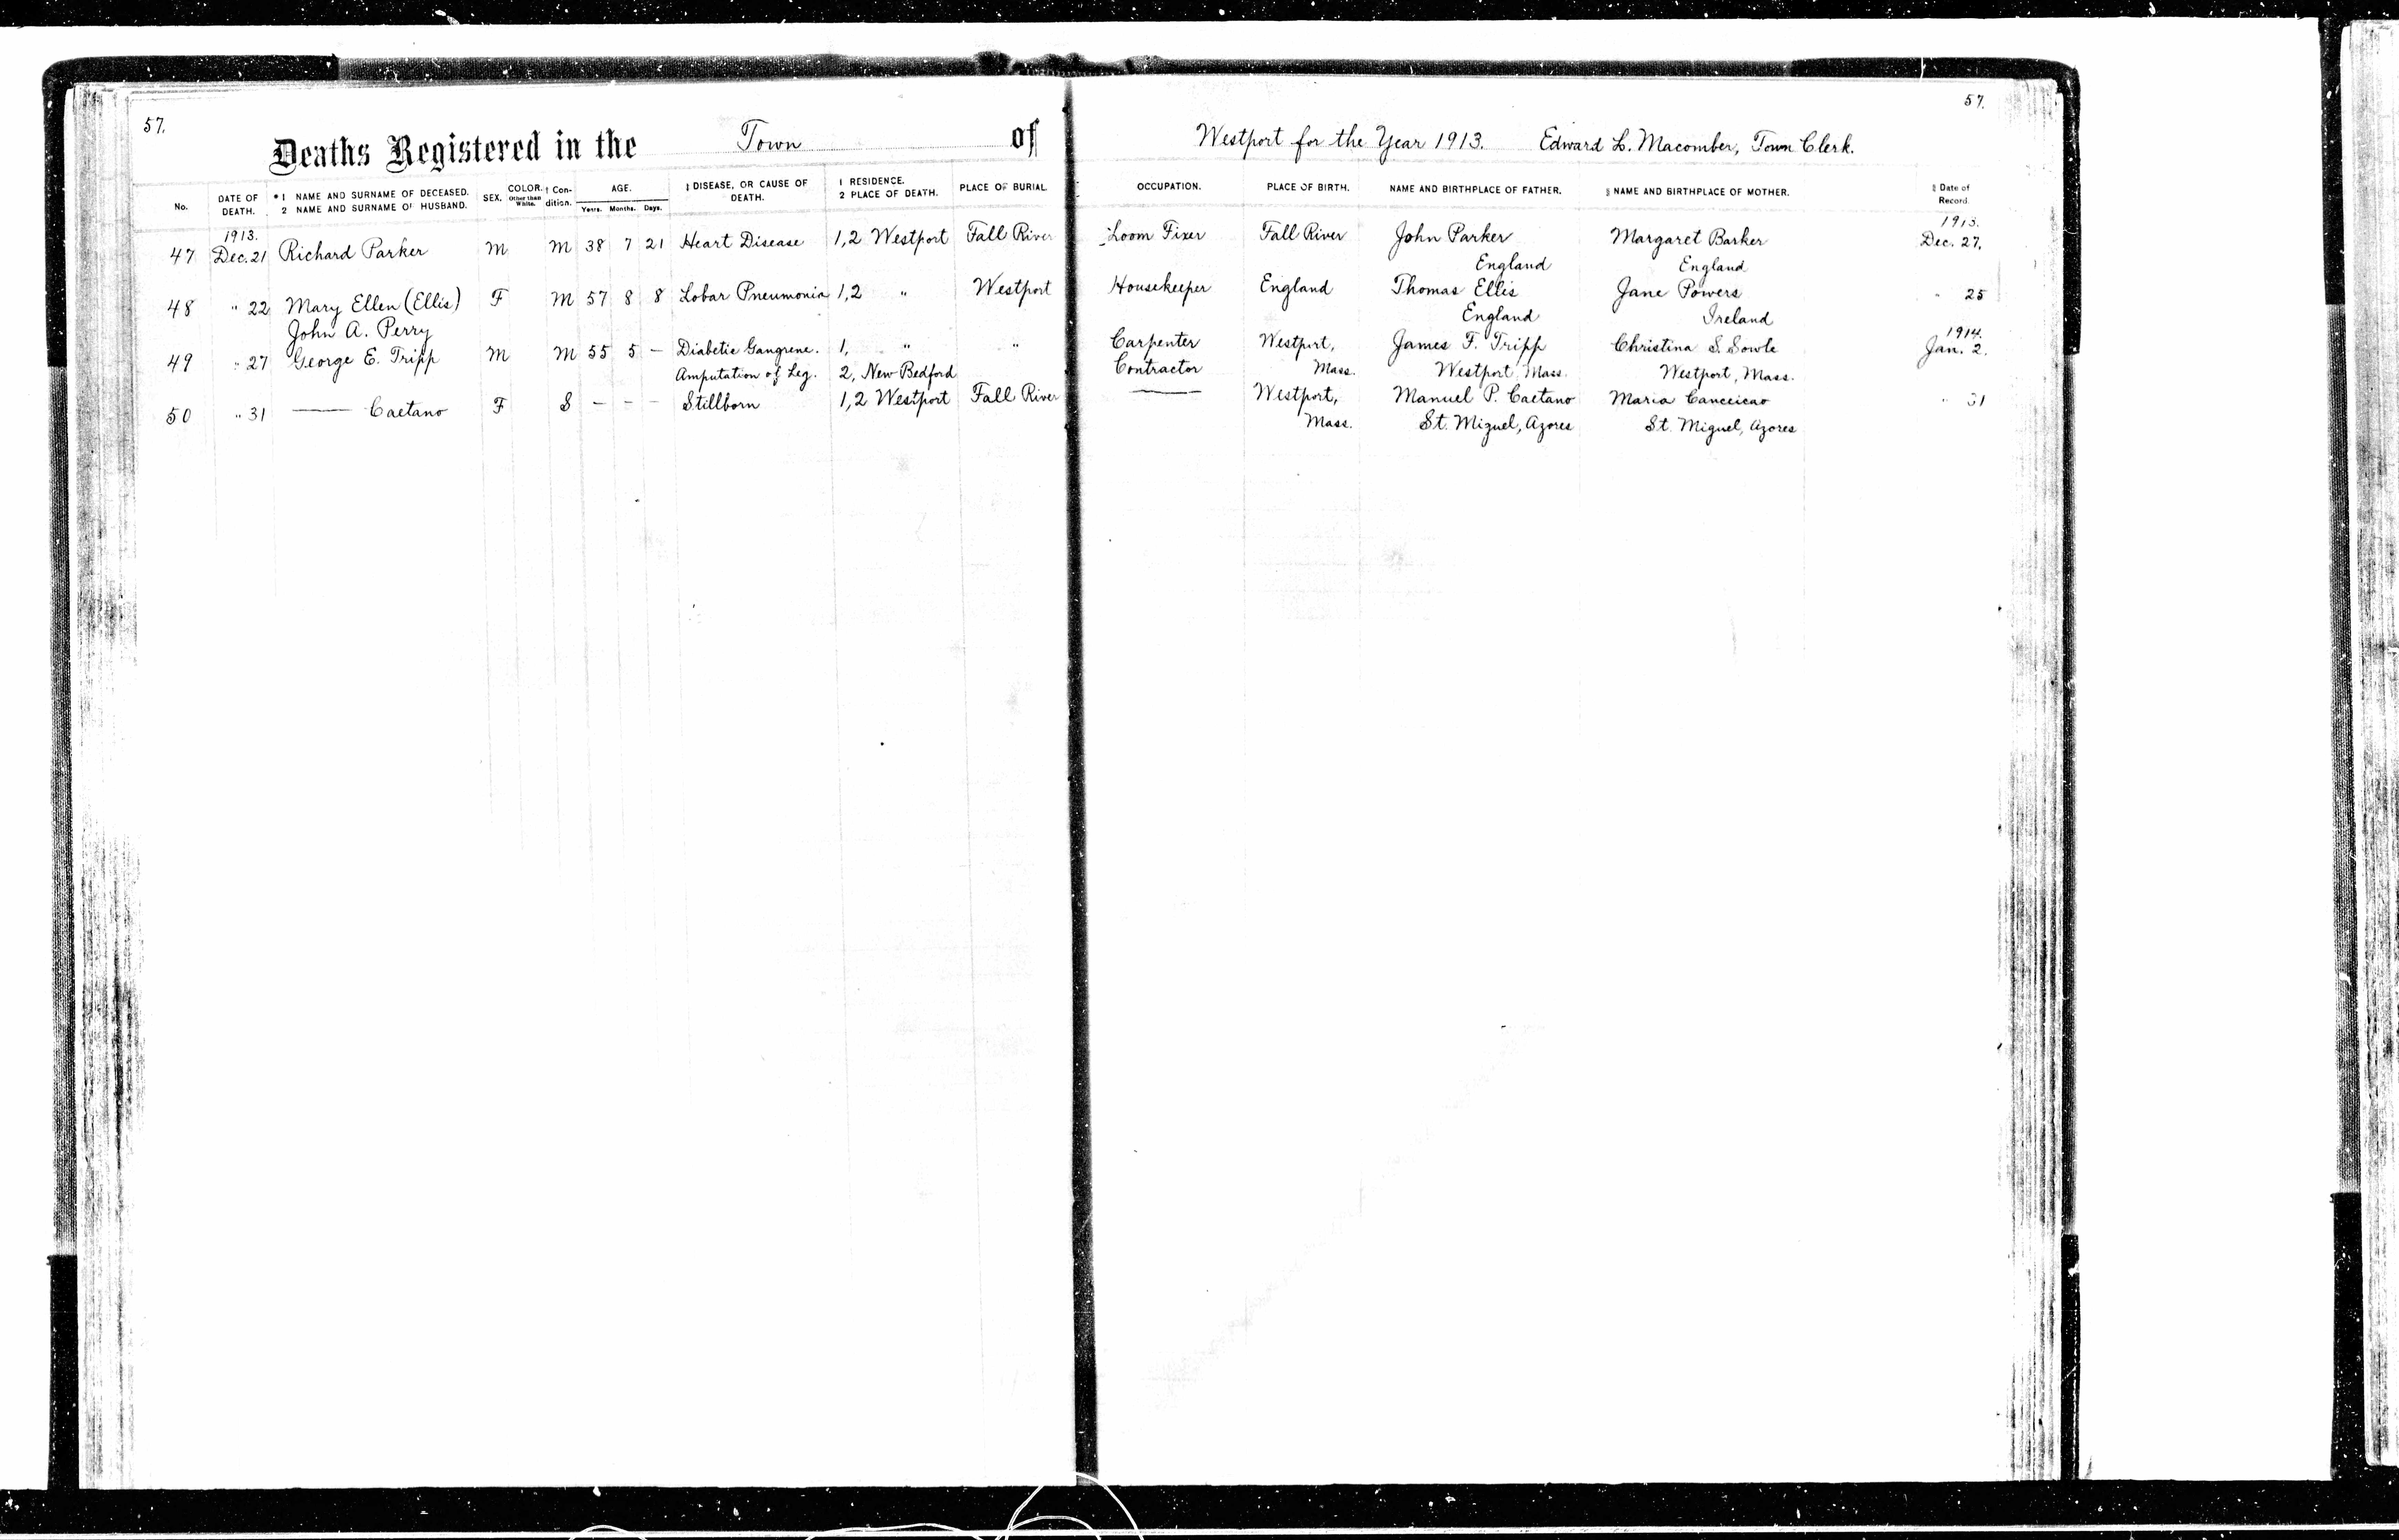 57.
57.
Deaths Registered in the Town of Westport for the Year 1913. Edward L. Macomber, Town Clerk.
No. DATE OF DEATH. *1 NAME AND SURNAME OF DECEASED. 2 NAME AND SURNAME OF HUSBAND. SEX. COLOR. Other than White. † Condition. AGE. Years. Months. Days. ‡ DISEASE, OR CAUSE OF DEATH. 1 RESIDENCE. 2 PLACE OF DEATH. PLACE OF BURIAL. OCCUPATION. PLACE OF BIRTH. NAME AND BIRTHPLACE OF FATHER. § NAME AND BIRTHPLACE OF MOTHER. Date of Record.
1913. 1913.
47 Dec. 21 Richard Parker M M 38 7 21 Heart Disease 1,2 Westport Fall River Loom Fixer Fall River John Parker Margaret Barker Dec. 27.
England England
48 " 22 Mary Ellen (Ellis) F M 57 8 8 Lobar Pneumonia 1,2 " Westport Housekeeper England Thomas Ellis Jane Powers " 25
John A. Perry England Ireland
1914.
49 " 27 George E. Tripp M M 55 5 – Diabetic Gangrene. 1, " " Carpenter Westport, James F. Tripp Christina S. Sowle Jan. 2.
Amputation of Leg. 2, New Bedford Contractor Mass. Westport, Mass. Westport, Mass.
50 " 31 —— Caetano F S – – – Stillborn 1,2 Westport Fall River —— Westport, Manuel P. Caetano Maria Canceicao " 31
Mass. St. Miguel, Azores St. Miguel, Azores